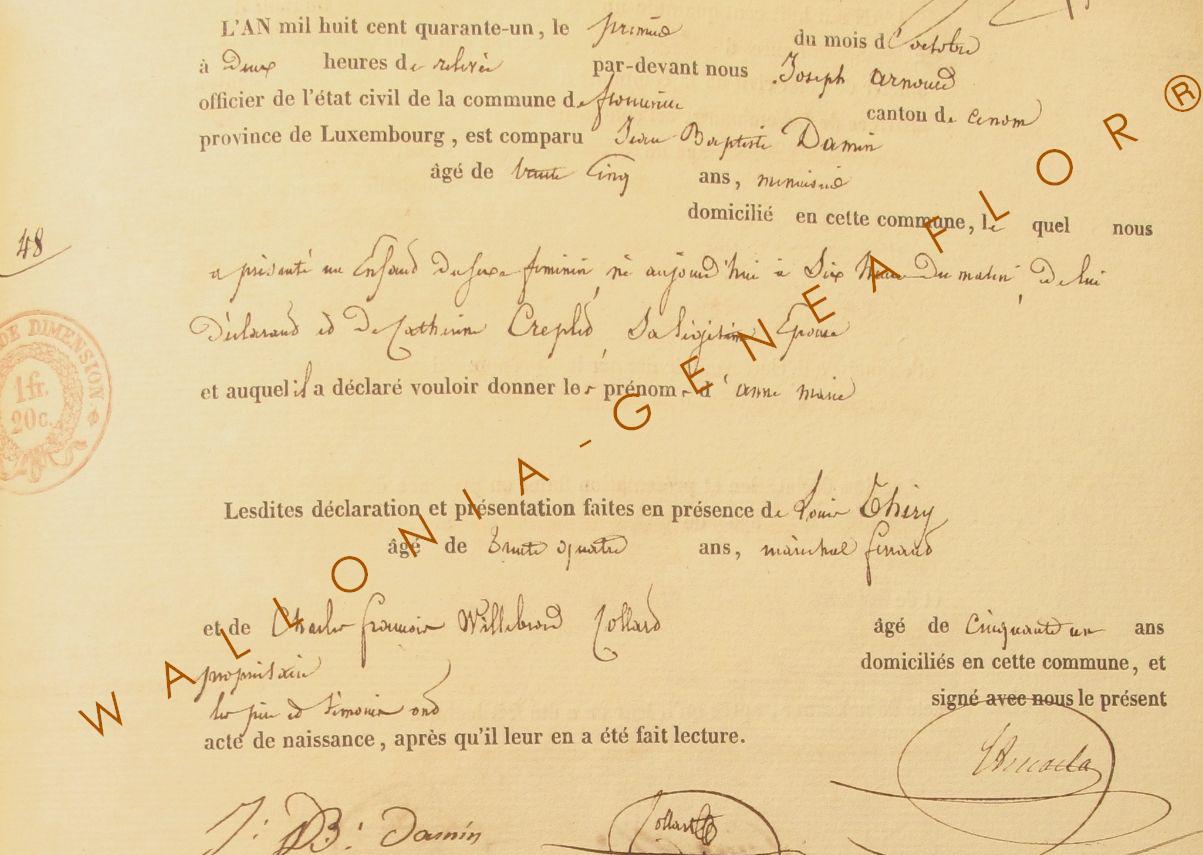 L'AN mil huit cent quarante-un, le premier du mois d'octobre
à Deux heures de relevée par-devant nous Joseph arnould
officier de l'état civil de la commune de canton de
province de Luxembourg, est comparu Jean Baptiste Damin
âgé de trente Cinq ans, menuisier
domicilié en cette commune, le quel nous
48
a présenté un Enfand du sexe feminin, né aujourd'hui à Six heures Du matin, de lui
Déclarand et De Catherine Creplet, Sa légitime Epouse
et auquel il a déclaré vouloir donner les prénoms d'anne marie
DE DIMENSION
1 fr.
20 c.
Lesdites déclaration et présentation faites en présence de Louis Thiry
âgé de trente quatre ans, maréchal ferrand
et de Charles françois Willebrord Collard âgé de Cinquante un ans
propriétaire domiciliés en cette commune, et
les père et témoins ont signé avec nous le présent
acte de naissance, après qu'il leur en a été fait lecture.
J: B: Damin Collard
WALLONIA-GENEAFLOR®